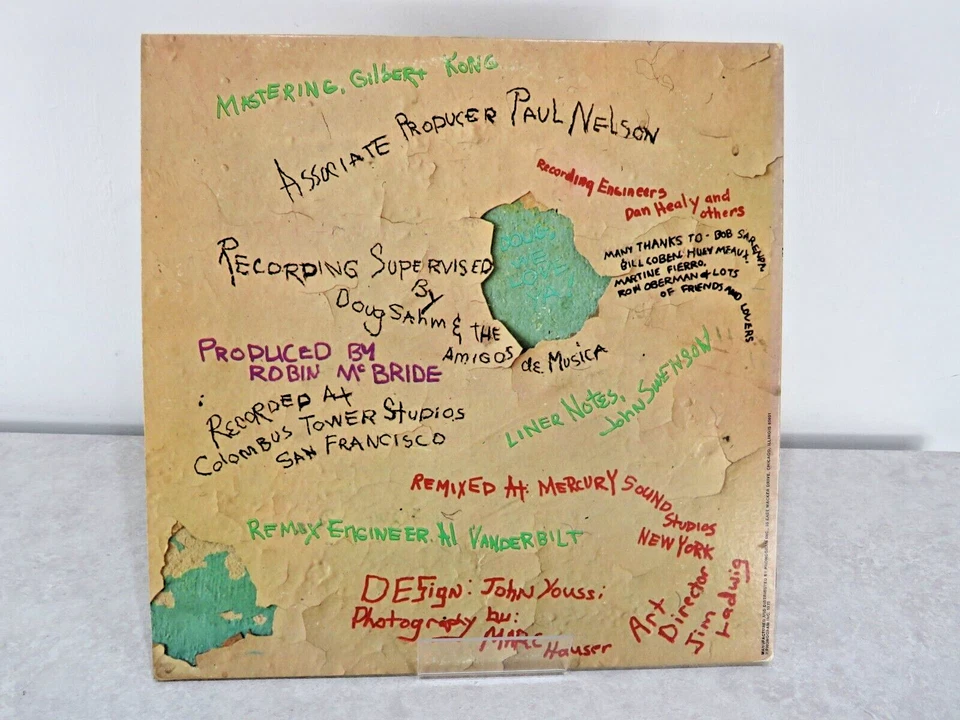 MASTERING, GilbERT KONG
ASSOCIATE PRODUCER PAUL NELSON
Recording Engineers
Dan Healy and
others
MANY THANKS TO - BOB SARENPA
BILL COBEN. HUEY MEAUX.
MARTINE FIERRO.
RON OBERMAN & LOTS
OF FRIENDS AND LOVERS
DOUG
WE
LOVE
YA
RECORDING SUPERVISED
By
Doug SAhm & THE
AMIGOS de MUSICA
PRODUCED BY
ROBIN McBRIDE
RECORDED At
COLOMBUS TOWER STUDIOS
SAN FRANCISCO
LINER NOTES,
John SWENSON
REMIXED At: MERCURY SOUND
STUDIOS
NEW YORK
REMIX ENGINEER. Al VANDERBILT
DESign: John Youssi
Photography by:
MARC Hauser
Art
Director
Jim
Ladwig